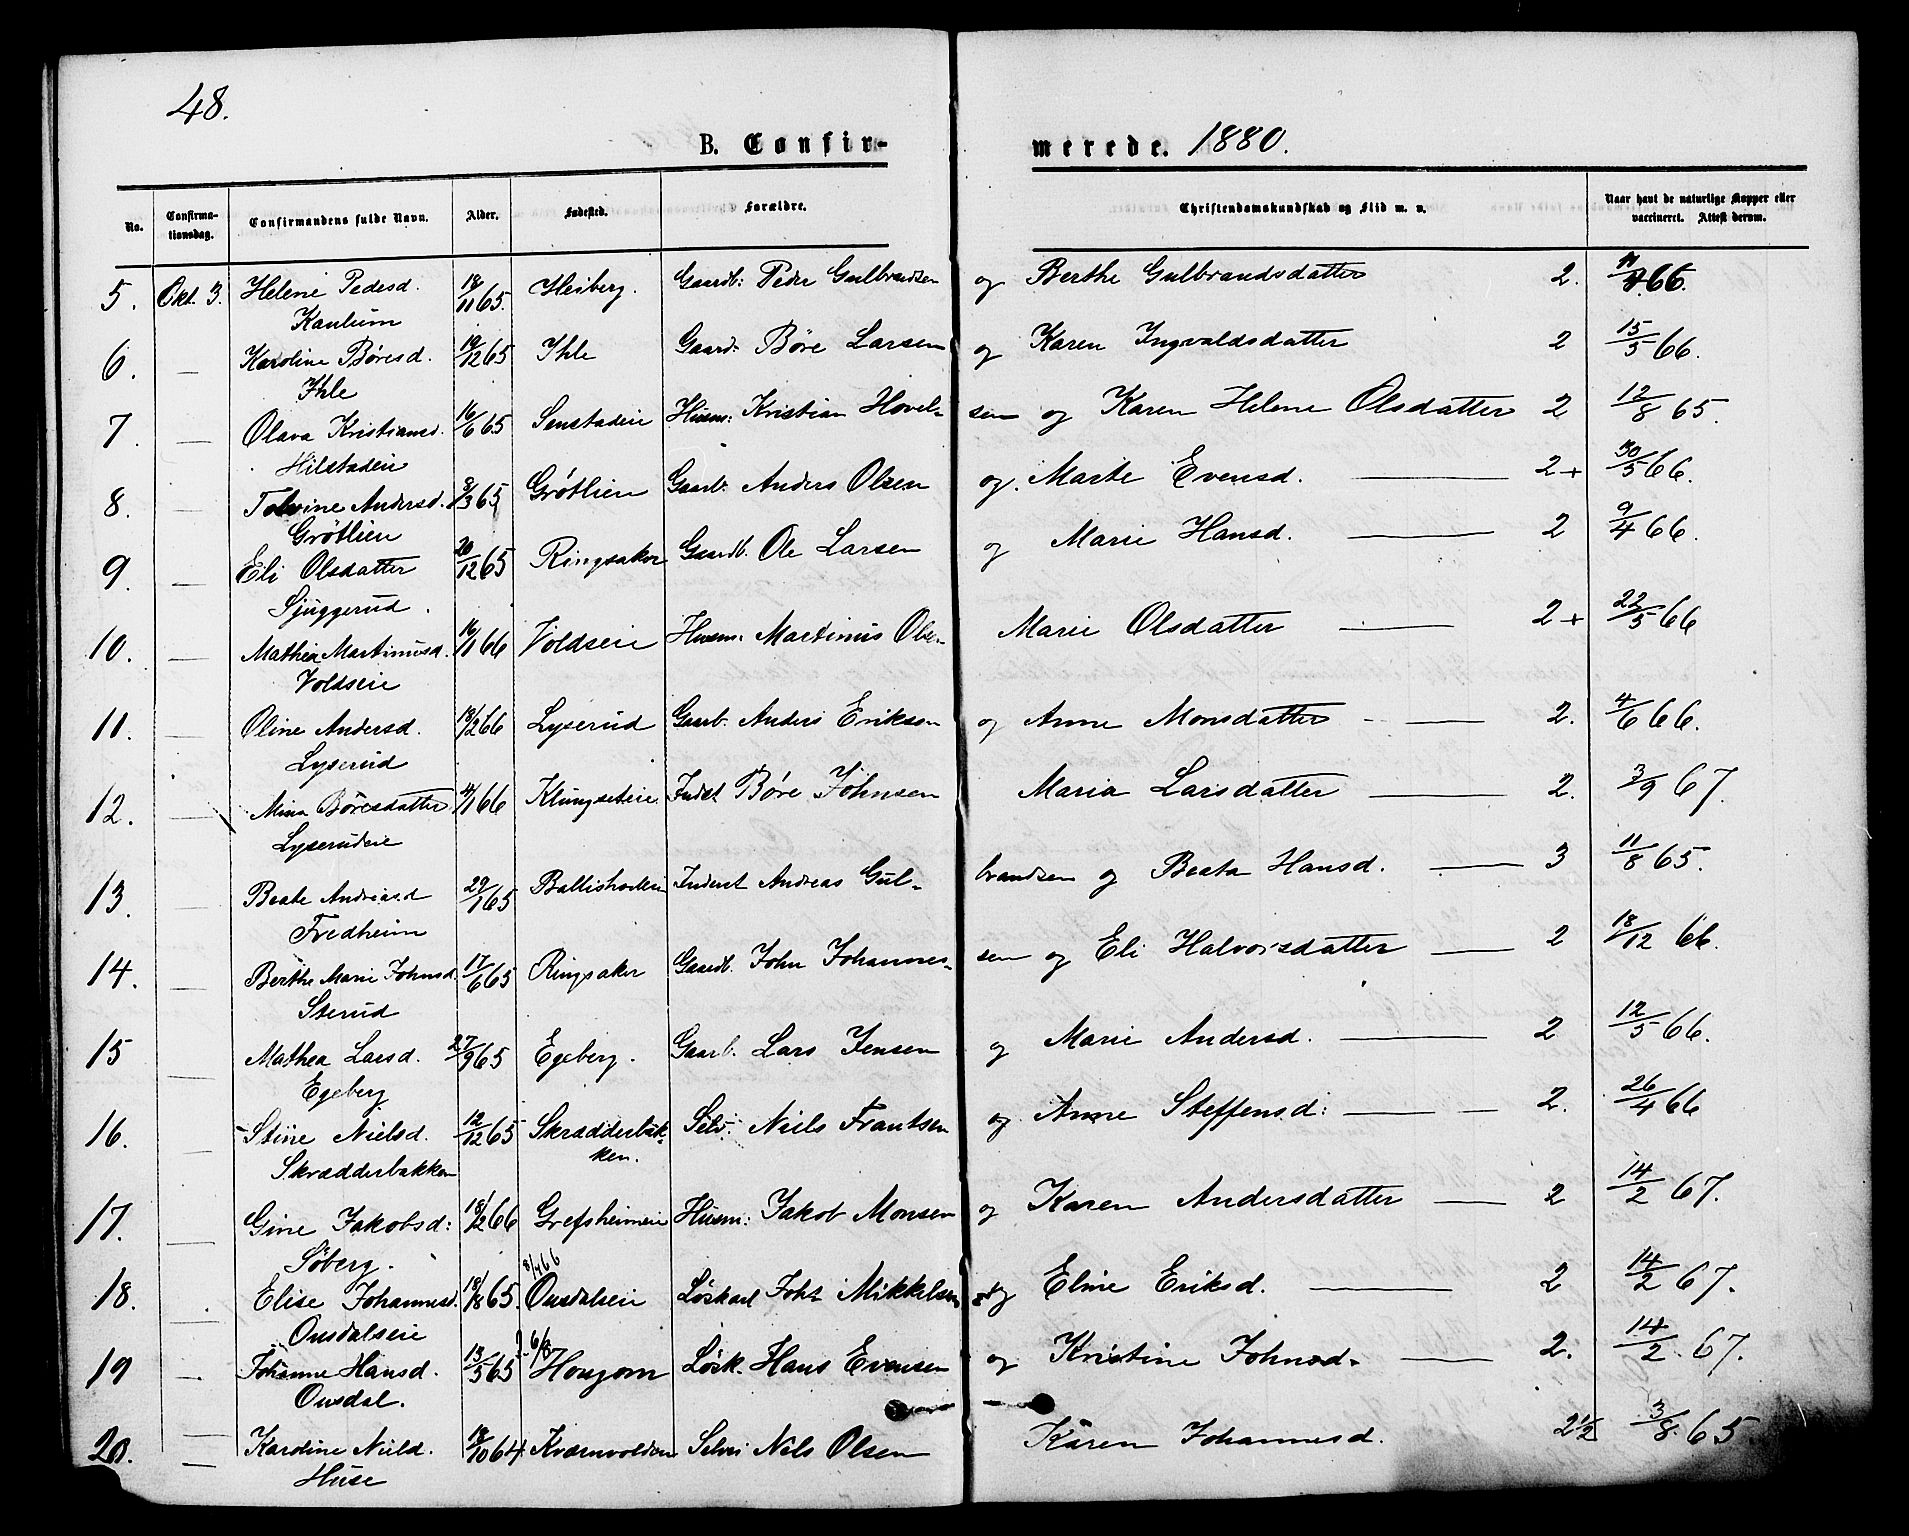 48.
B. Confir- merede. 1880.
No. Confirma-tionsdag. Confirmandens fulde Navn. Alder. Fødested. Forældre. Christendomskundskab og Flid m. v. Naar havt de naturlige Kopper eller vaccineret. Attest derom.
5. Okt. 3. Helene Pedesd. 18/11 65. Heiberg. Gaardb: Peder Gulbrandsen og Berthe Gulbrandsdatter 2. 66.
Kaulum
6. — Karoline Børesd. 19/12 65 Ihle Gaard. Børe Larsen og Karen Ingvaldsdatter 2 15/5 66.
Ihle
7. — Olava Kristiansd. 16/6 65 Senstadeie Husm: Kristian Hovel- sen og Karen Helene Olsdatter 2 12/8 65.
Hilstadeie
8. — Tolvine Andersd. 8/3 65 Grøtlien Gaarb. Anders Olsen og. Marte Evensd. — 2+ 30/5 66.
Grøtlien
9. — Eli Olsdatter 20/12 65 Ringsaker Gaardb. Ole Larsen og Marie Hansd. — 2 9/4 66.
Sjuggerud.
10. — Mathea Martinusd. 16/1 66 Voldseie Husm: Martinus Olse- Marie Olsdatter — 2+ 22/5 66
Voldseie
11. — Oline Andersd. 13/2 66 Lyserud Gaarb. Anders Eriksen og Anne Monsdatter — 2. 4/6 66.
Lyserud
12. — Mina Børesdatter 4/1 66 Klungseteie Inderst Børe Johnsen Maria Larsdatter — 2. 3/9 67.
Lyserudeie
13. — Beate Andreasd 29/1 65 Inderst Andreas Gul- brandsen og Beata Hansd. — 3 11/8 65.
Fredheim
14. — Berthe Marie Johnsd. 17/6 65 Ringsaker Gaardb. John Johannes- sen og Eli Halvorsdatter — 2 18/12 66.
Sterud
15 — Mathea Larsd. 27/9 65 Egeberg. Gaarb. Lars Jensen og Marie Andersd. — 2 12/5 66.
Egeberg
16. — Stine Nielsd. 12/12 65 Skrædderbak- Selv: Niels Frantsen og Anne Steffensd: — 2. 26/4 66
Skrædderbakken ken.
17. — Gine Jakobsd: 18/2 66 Grefsheimeie Husm: Jakob Monsen og Karen Andersdatter — 2 14/2 67.
Søberg. 8/4 66
18. Elise Johannesd. 65. Onsdalseie Løskarl Joh: Mikkelsen og Eline Eriksd. — 2 14/2 67.
Onsdalseie 6/8
19 — Johanne Hansd. 13/5 65 Hougom Løsk. Hans Evensen og Kristine Johnsd. — 2. 14/2 67.
Onsdal.
20. — Karoline Nield. 18/10 64. Kværnvolden Selvei Nils Olsen Karen Johannesd. 2½ 3/8. 65
Huse